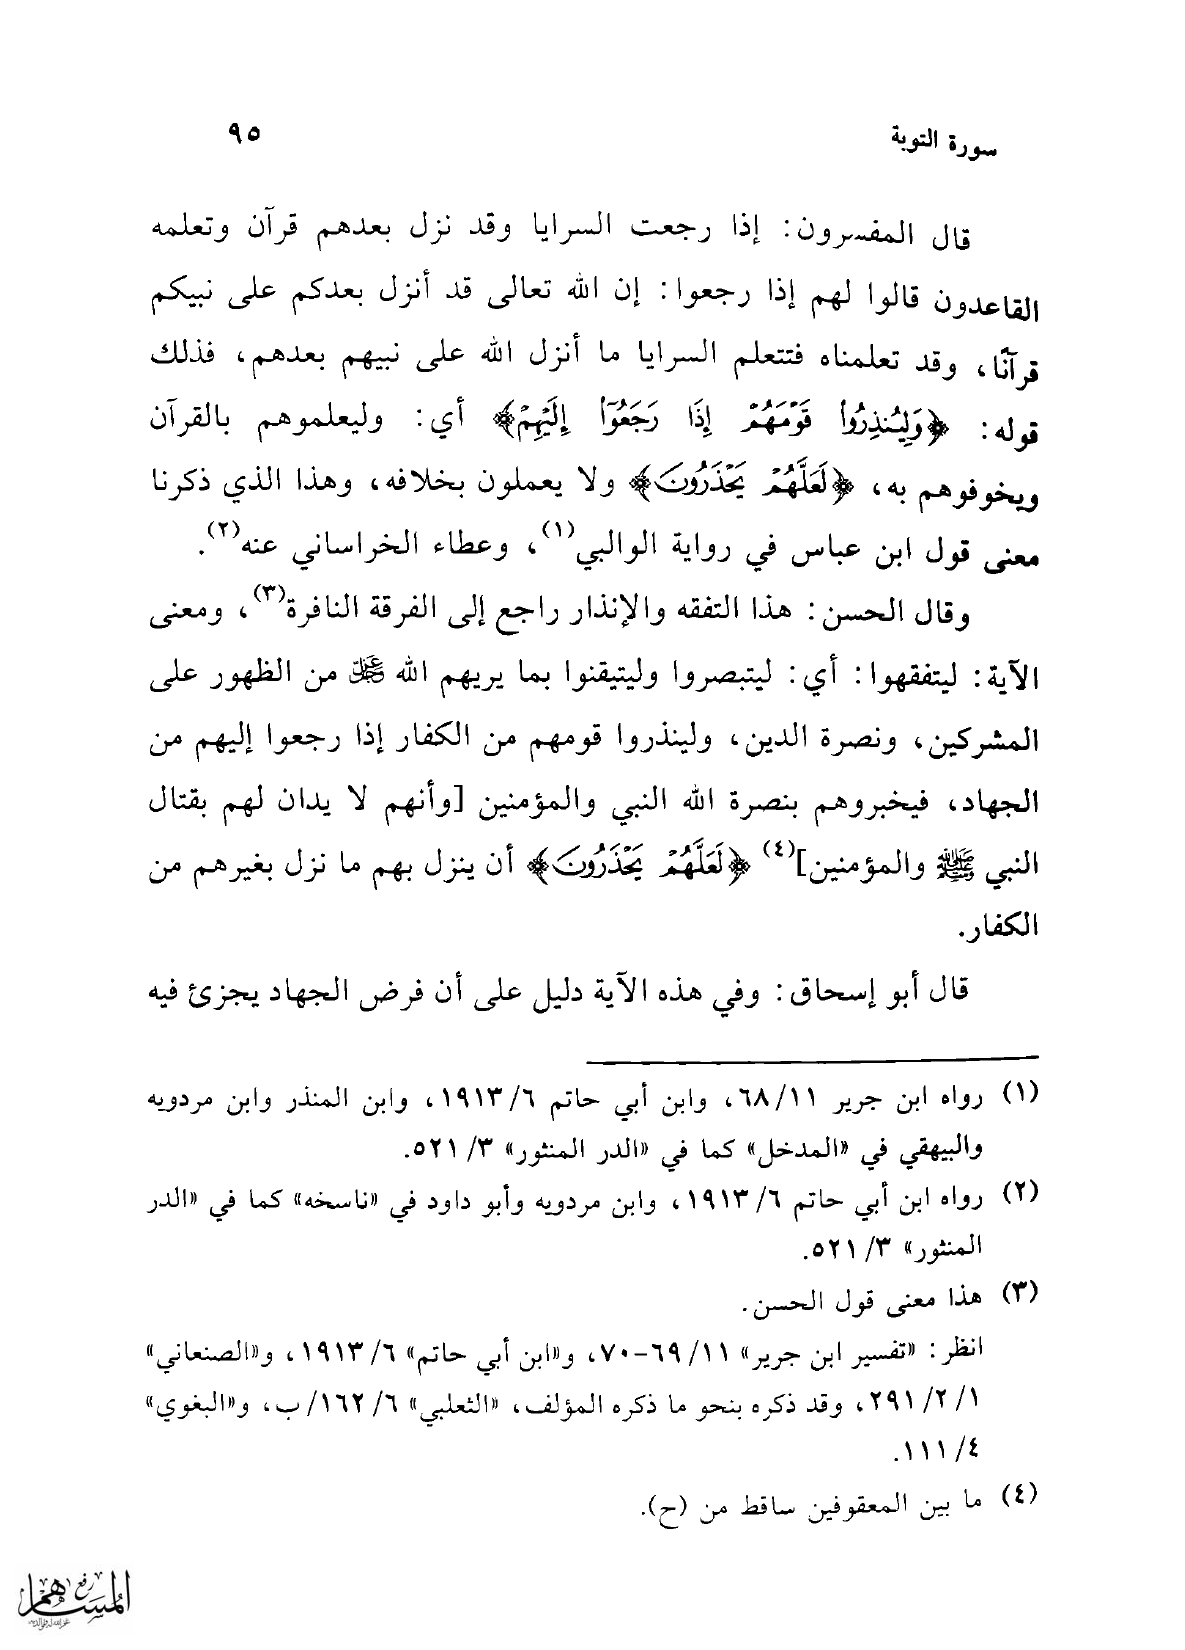 سورة التوبة ٩٥
قال المفسرون: إذا رجعت السرايا وقد نزل بعدهم قرآن وتعلمه
القاعدون قالوا لهم إذا رجعوا: إن الله تعالى قد أنزل بعدكم على نبيكم
قرآنًا، وقد تعلمناه فتتعلم السرايا ما أنزل الله على نبيهم بعدهم، فذلك
قوله: ﴿وَلِيُنذِرُوا۟ قَوْمَهُمْ إِذَا رَجَعُوٓا۟ إِلَيْهِمْ﴾ أي: وليعلموهم بالقرآن
ويخوفوهم به، ﴿لَعَلَّهُمْ يَحْذَرُونَ﴾ ولا يعملون بخلافه، وهذا الذي ذكرنا
معنى قول ابن عباس في رواية الوالبي(١)، وعطاء الخراساني عنه(٢).
وقال الحسن: هذا التفقه والإنذار راجع إلى الفرقة النافرة(٣)، ومعنى
الآية: ليتفقهوا: أي: ليتبصروا وليتيقنوا بما يريهم الله عز وجل من الظهور على
المشركين، ونصرة الدين، ولينذروا قومهم من الكفار إذا رجعوا إليهم من
الجهاد، فيخبروهم بنصرة الله النبي والمؤمنين [وأنهم لا يدان لهم بقتال
النبي ﷺ والمؤمنين](٤) ﴿لَعَلَّهُمْ يَحْذَرُونَ﴾ أن ينزل بهم ما نزل بغيرهم من
الكفار.
قال أبو إسحاق: وفي هذه الآية دليل على أن فرض الجهاد يجزئ فيه
(١) رواه ابن جرير ١١/ ٦٨، وابن أبي حاتم ٦/ ١٩١٣، وابن المنذر وابن مردويه
والبيهقي في «المدخل» كما في «الدر المنثور» ٣/ ٥٢١.
(٢) رواه ابن أبي حاتم ٦/ ١٩١٣، وابن مردويه وأبو داود في «ناسخه» كما في «الدر
المنثور» ٣/ ٥٢١.
(٣) هذا معنى قول الحسن.
انظر: «تفسير ابن جرير» ١١/ ٦٩-٧٠، و«ابن أبي حاتم» ٦/ ١٩١٣، و«الصنعاني»
١/ ٢/ ٢٩١، وقد ذكره بنحو ما ذكره المؤلف، «الثعلبي» ٦/ ١٦٢/ ب، و«البغوي»
٤/ ١١١.
(٤) ما بين المعقوفين ساقط من (ح).